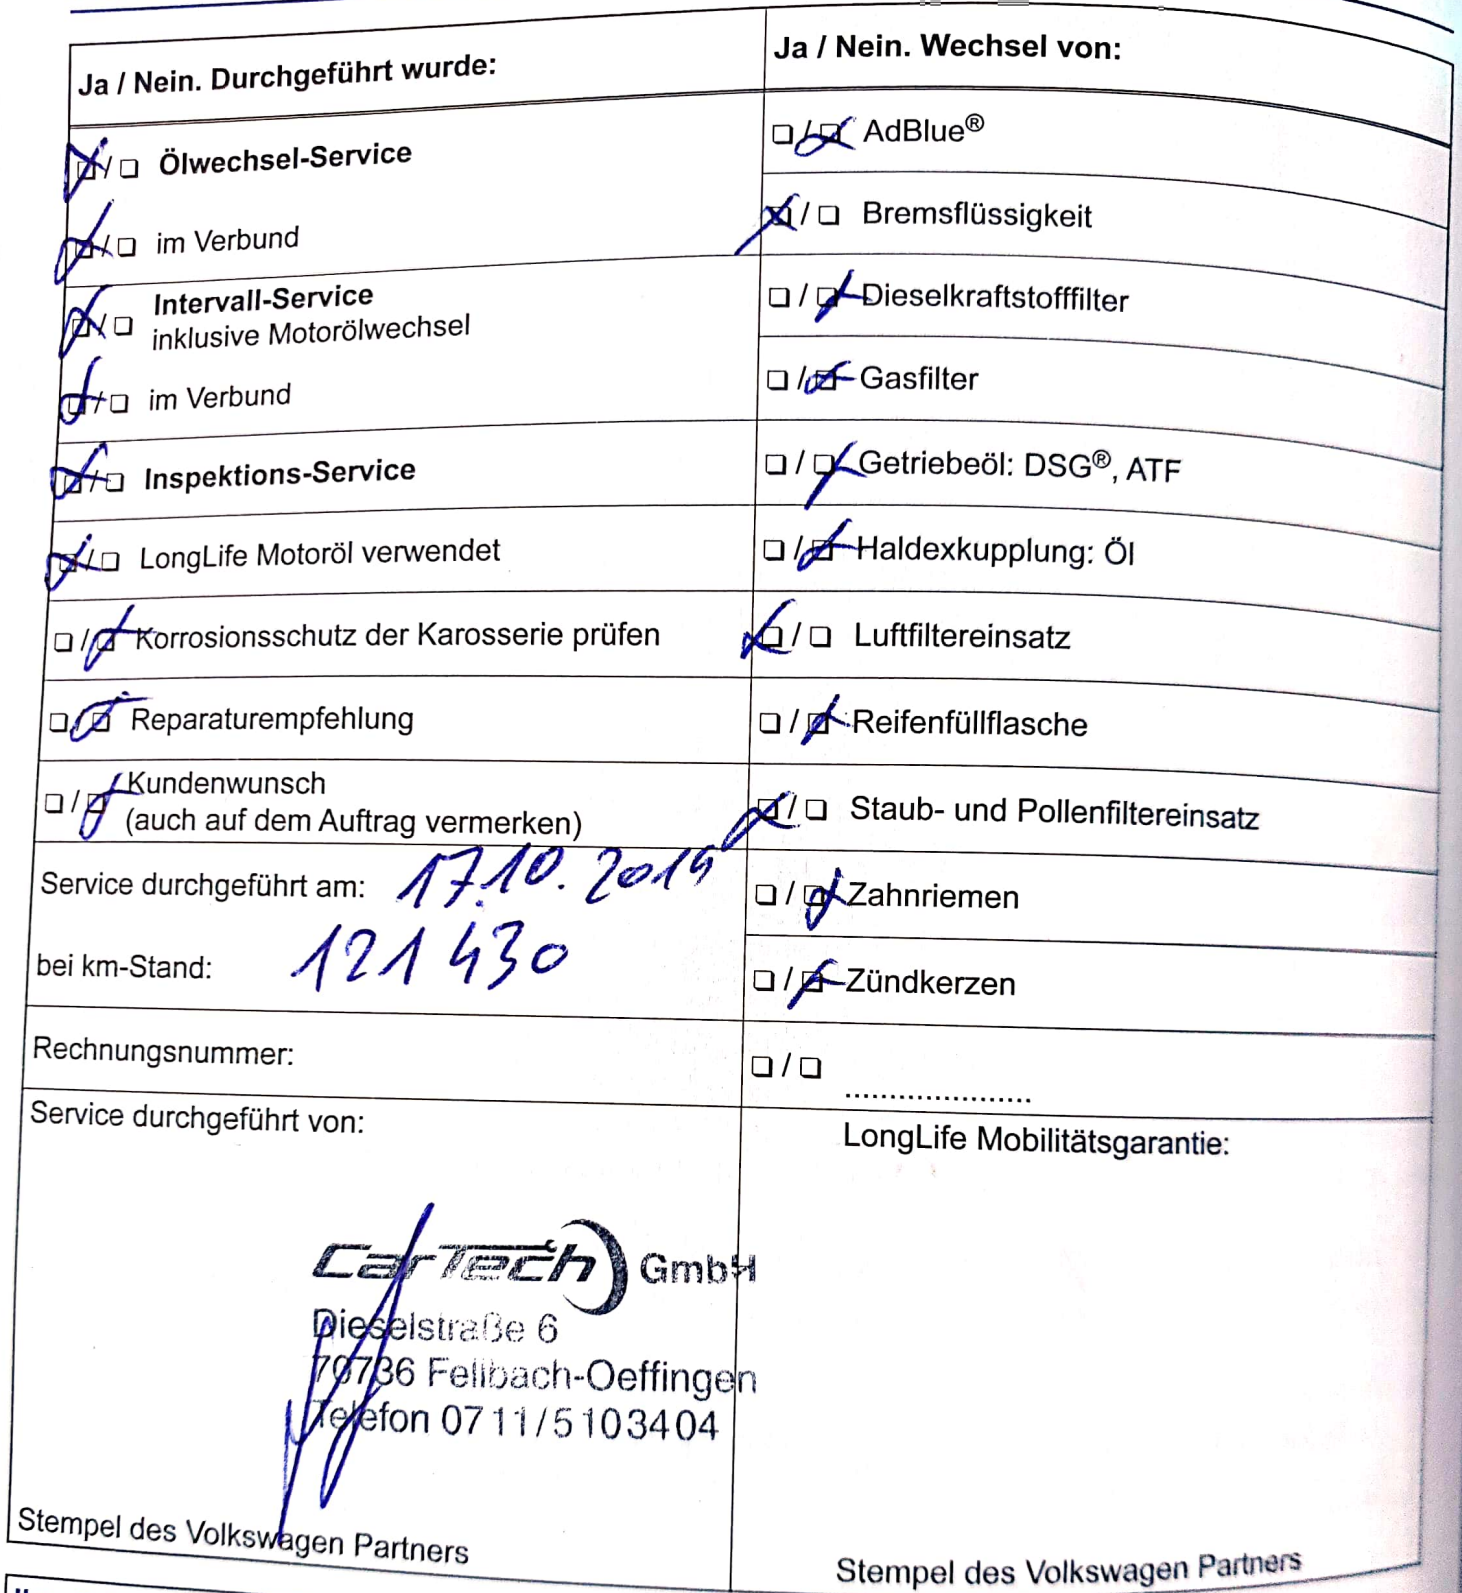 Ja / Nein. Durchgeführt wurde:
☒ / ☐ Ölwechsel-Service
☒ / ☐ im Verbund
☒ / ☐ Intervall-Service
inklusive Motorölwechsel
☒ / ☐ im Verbund
☒ / ☐ Inspektions-Service
☒ / ☐ LongLife Motoröl verwendet
☐ / ☒ Korrosionsschutz der Karosserie prüfen
☐ / ☒ Reparaturempfehlung
☐ / ☒ Kundenwunsch
(auch auf dem Auftrag vermerken)
Service durchgeführt am: 17.10.2019
bei km-Stand: 121430
Rechnungsnummer:
Service durchgeführt von:
CarTech GmbH
Dieselstraße 6
70736 Fellbach-Oeffingen
Telefon 0711/5103404
Stempel des Volkswagen Partners
Ja / Nein. Wechsel von:
☐ / ☒ AdBlue®
☒ / ☐ Bremsflüssigkeit
☐ / ☒ Dieselkraftstofffilter
☐ / ☒ Gasfilter
☐ / ☒ Getriebeöl: DSG®, ATF
☐ / ☒ Haldexkupplung: Öl
☒ / ☐ Luftfiltereinsatz
☐ / ☒ Reifenfüllflasche
☒ / ☐ Staub- und Pollenfiltereinsatz
☐ / ☒ Zahnriemen
☐ / ☒ Zündkerzen
☐ / ☐ .....................
LongLife Mobilitätsgarantie:
Stempel des Volkswagen Partners